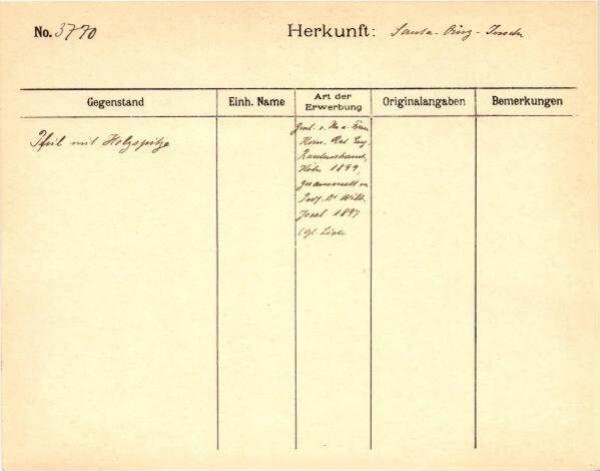 No. 3770
Herkunft: Santa-Cruz-Inseln
Gegenstand
Einh. Name
Art der Erwerbung
Originalangaben
Bemerkungen
Pfeil mit Holzspitze
Gesch. v. Hr. u. Frau
Kom. Rat Eug.
Rautenstrauch,
Köln 1899,
gesammelt v.
Prof. Dr Wilh.
Joest 1897